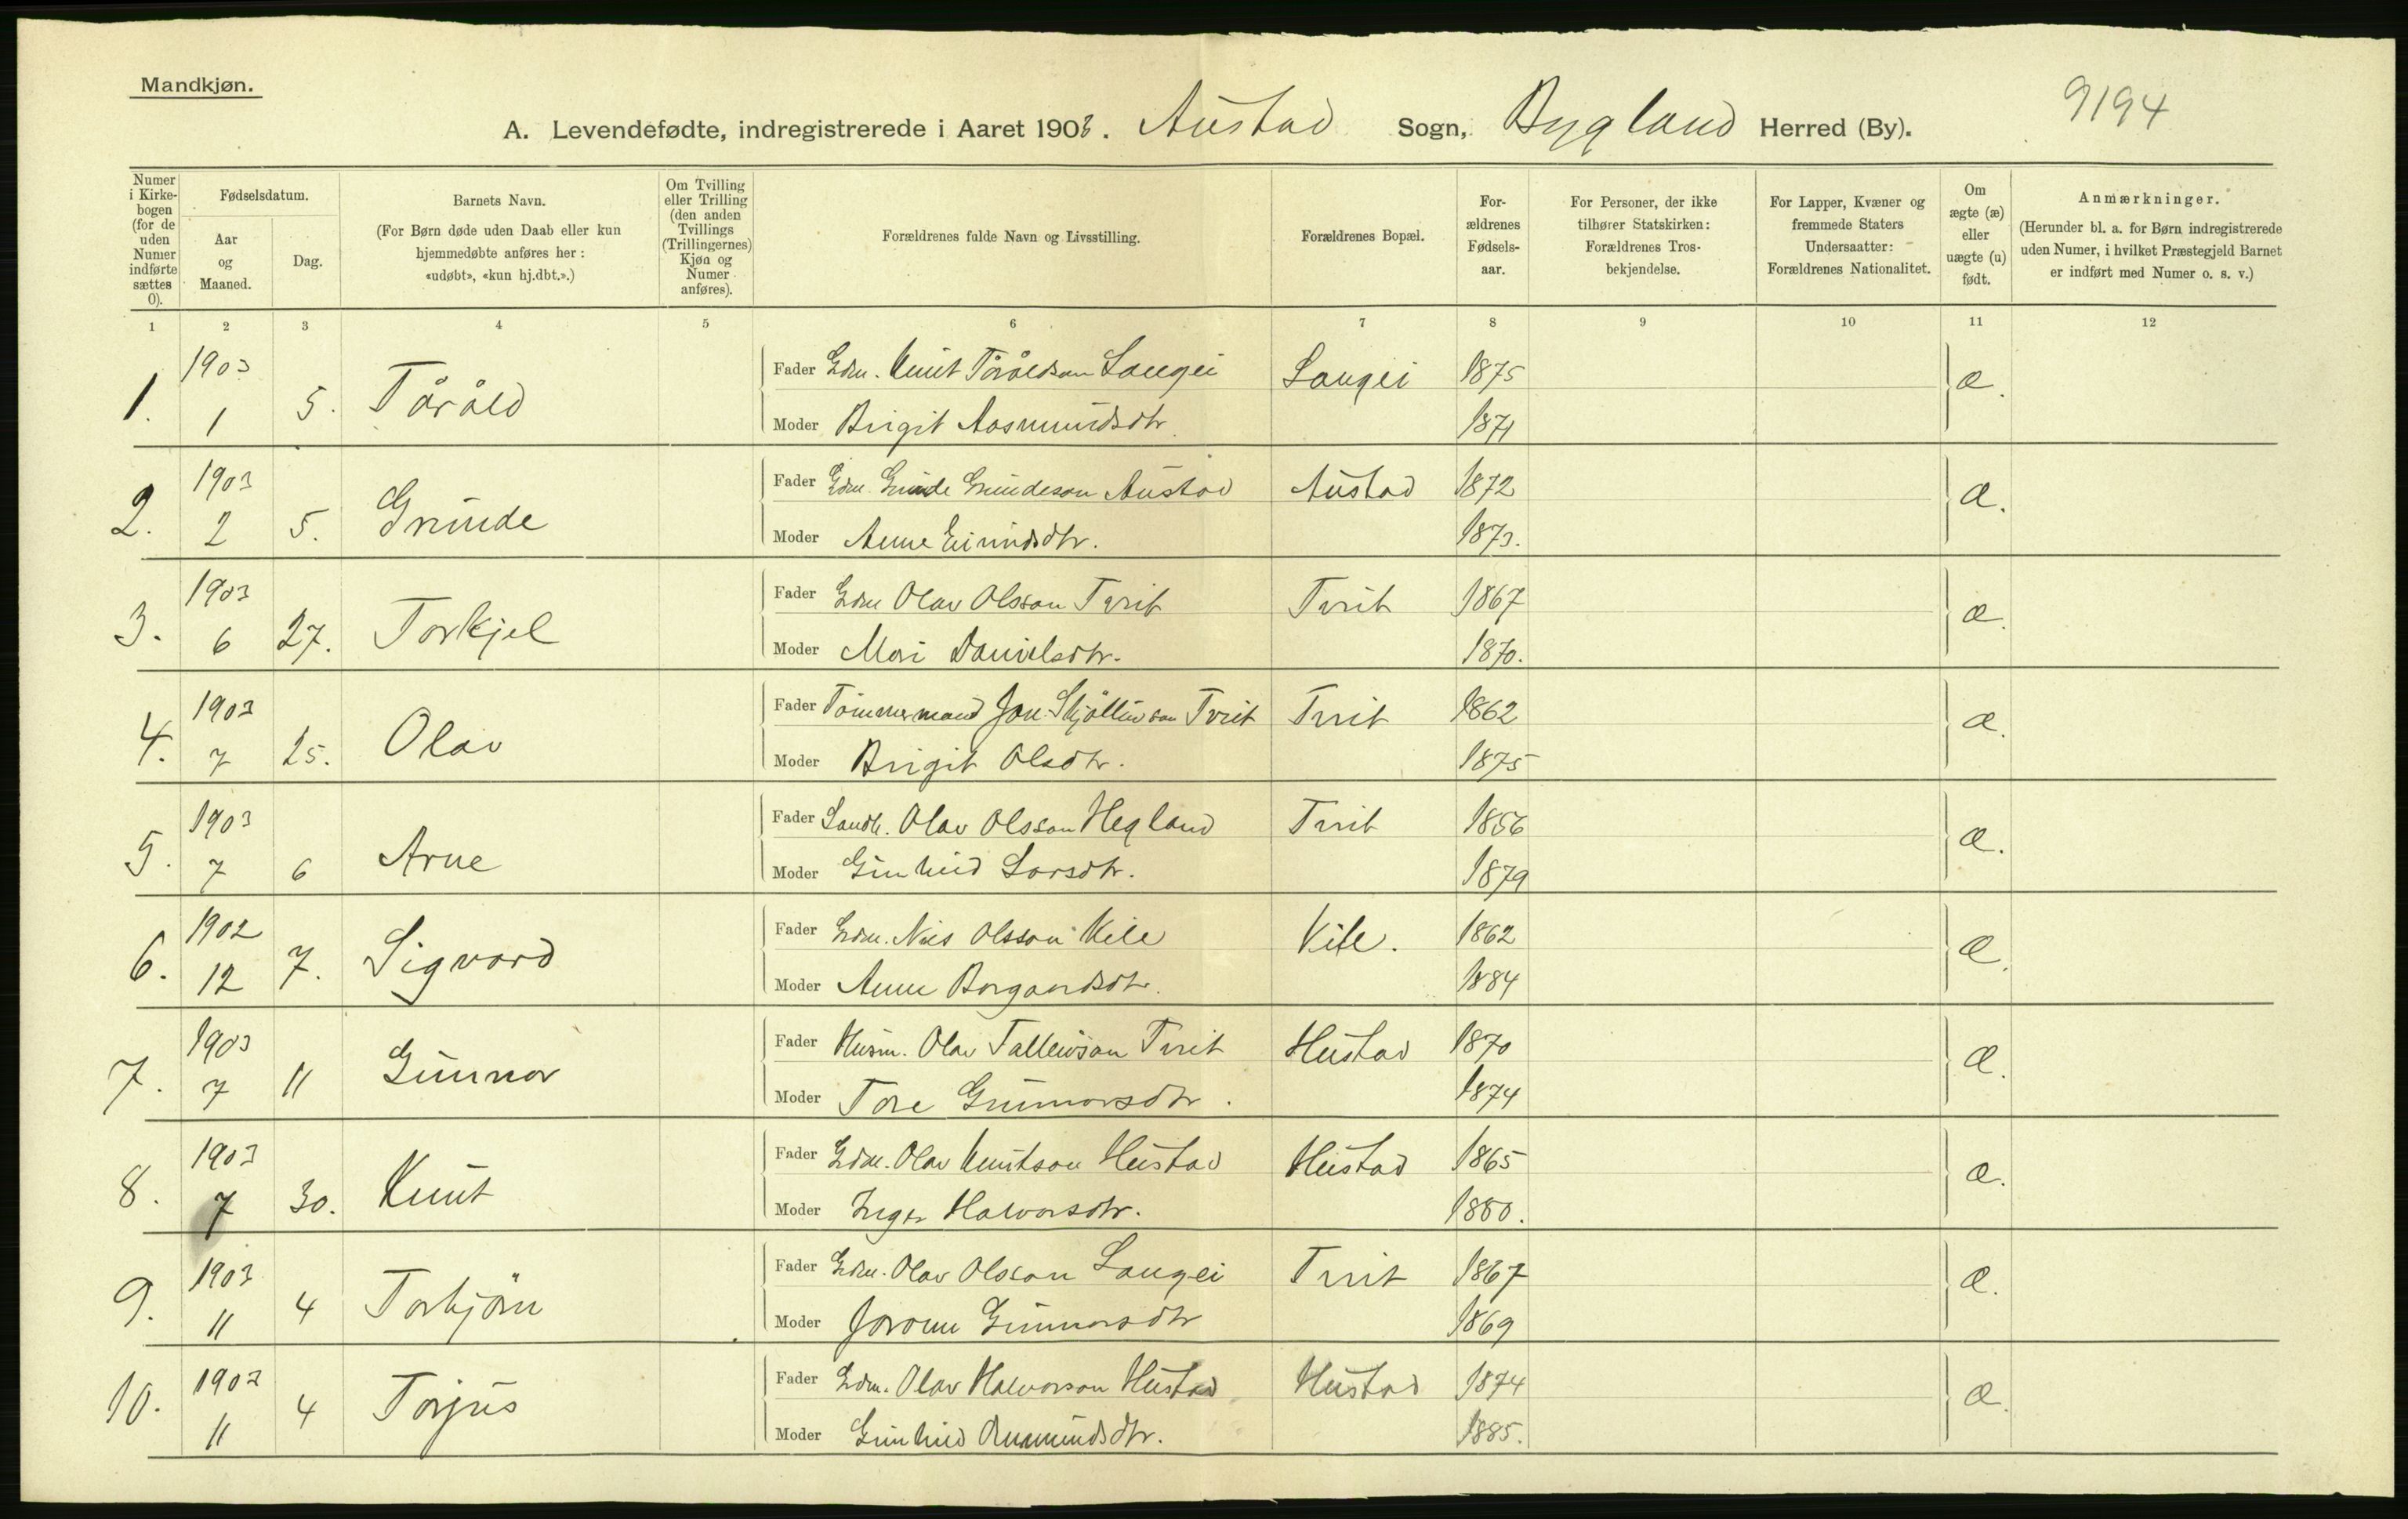 Mandkjøn.
9194
A. Levendefødte, indregistrerede i Aaret 1903. Austad Sogn, Bygland Herred (By).
Numer i Kirkebogen (for de uden Numer indførte sættes 0).
Fødselsdatum.
Aar og Maaned.
Dag.
Barnets Navn.
(For Børn døde uden Daab eller kun hjemmedøbte anføres her: «udøbt», «kun hj.dbt.».)
Om Tvilling eller Trilling (den anden Tvillings (Trillingernes) Kjøn og Numer anføres).
Forældrenes fulde Navn og Livsstilling.
Forældrenes Bopæl.
Forældrenes Fødselsaar.
For Personer, der ikke tilhører Statskirken: Forældrenes Trosbekjendelse.
For Lapper, Kvæner og fremmede Staters Undersaatter: Forældrenes Nationalitet.
Om ægte (æ) eller uægte (u) født.
Anmærkninger.
(Herunder bl. a. for Børn indregistrerede uden Numer, i hvilket Præstegjeld Barnet er indført med Numer o. s. v.)
1 2 3 4 5 6 7 8 9 10 11 12
1. 1903 1 5. Tåråld Fader Gdm. Knut Tåråldson Langei Langei 1875 æ.
Moder Birgit Aasmundsdtr. 1871
2. 1903 2 5. Grunde Fader Gdm. Grunde Grundeson Austad Austad 1872 æ.
Moder Anne Eivindsdtr. 1873.
3. 1903 6 27. Torkjel Fader Gdm Olav Olsson Tveit Tveit 1867 æ.
Moder Mari Danielsdtr. 1870.
4. 1903 7 25. Olav Fader Tömmermand Jon Skjöllivson Tveit Tveit 1862 æ.
Moder Birgit Olsdtr. 1875
5. 1903 7 6 Arne Fader Landh. Olav Olsson Hegland Tveit 1856 æ.
Moder Gunhild Larsdtr. 1879
6. 1902 12 7. Sigvard Fader Gdm. Nils Olsson Kile Kile. 1862 æ.
Moder Anne Borgarsdtr. 1884
7. 1903 7 11 Gunnar Fader Husm. Olav Tallevson Tveit Hustad 1870 æ.
Moder Tore Gunnarsdtr. 1874
8. 1903 7 30. Knut Fader Gdm. Olav Knutson Hustad Hustad 1865 æ.
Moder Inger Halvorsdtr. 1880.
9. 1903 11 4 Torbjörn Fader Gdm. Olav Olsson Langei Tveit 1867 æ.
Moder Joronn Gunnarsdtr 1869
10. 1903 11 4 Torjus Fader Gdm. Olav Halvorson Hustad Hustad 1874 æ.
Moder Gunhild Aanundsdtr. 1885.